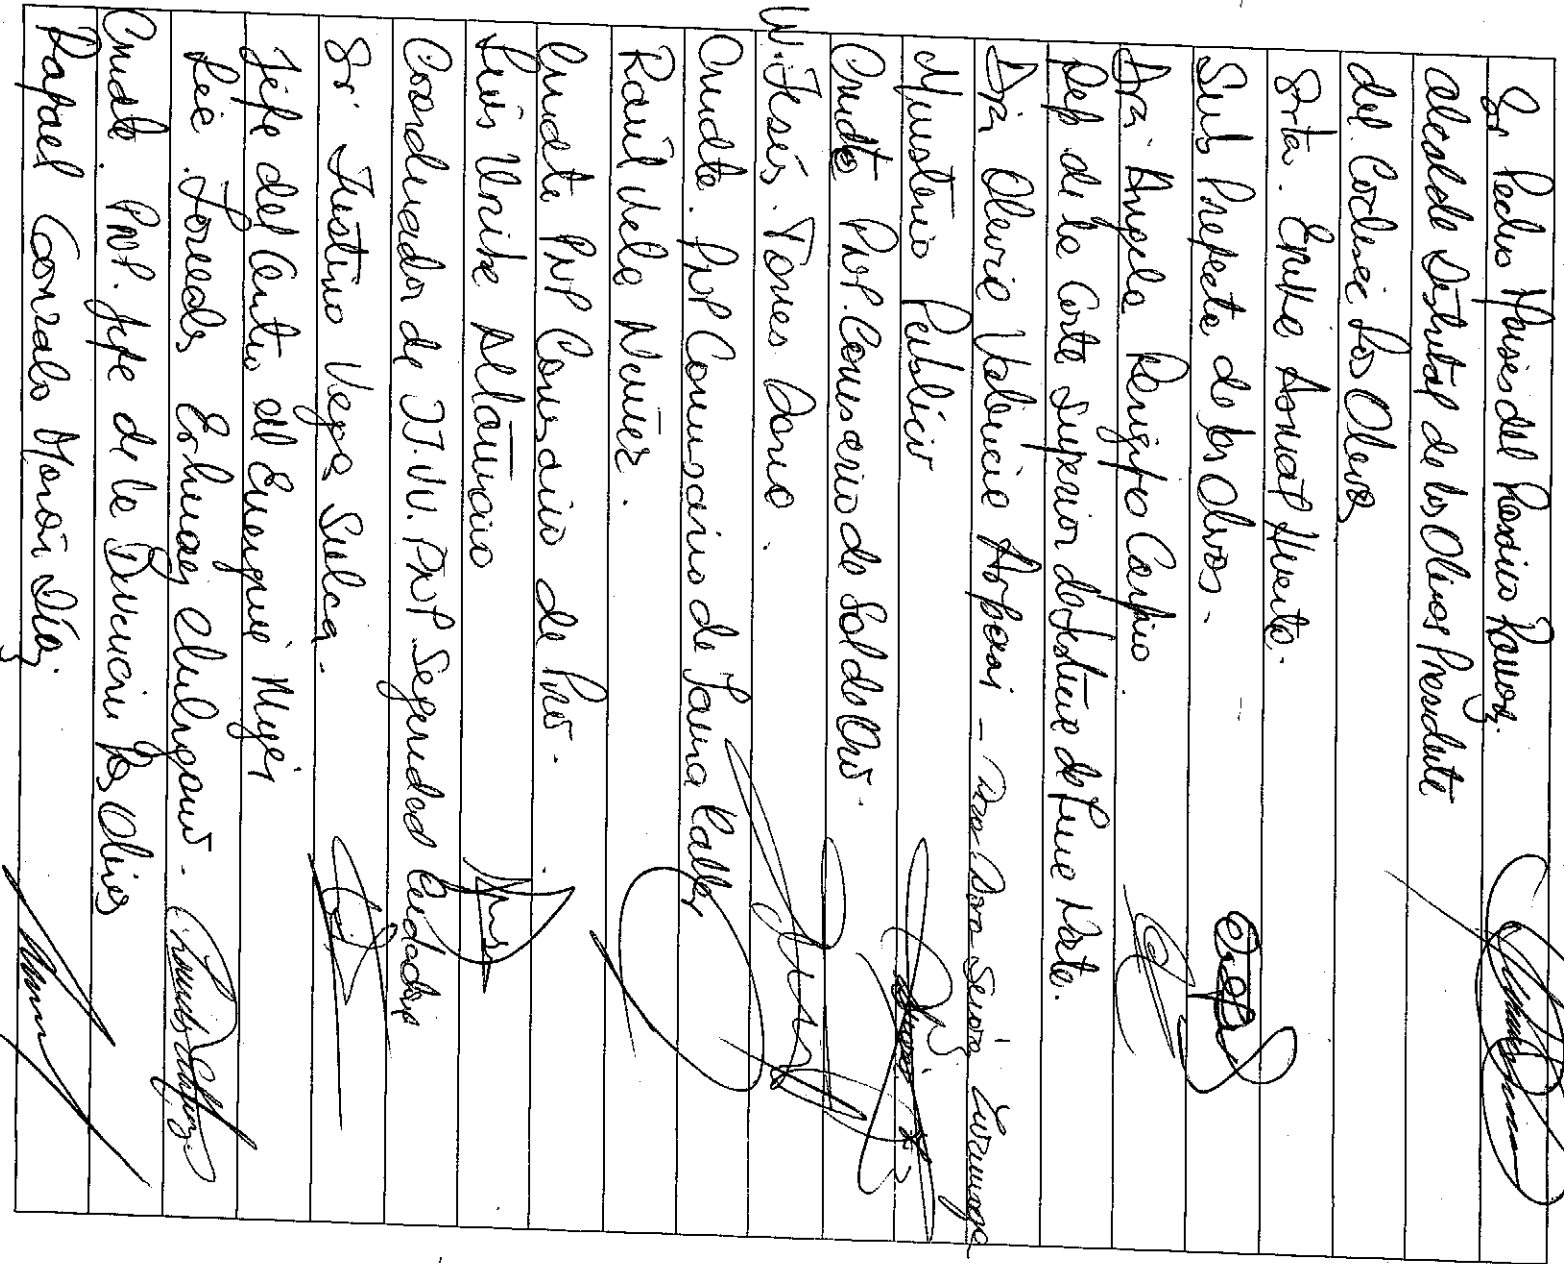 Sr Pedro Moises del Rosario Ramos.
alcalde Distrital de los Olivos Presidente
del Codisec Los Olivos
Srta. Ericka Asmat Huerta.
Sub Prefecta de los Olivos.
Dra. Angela Rengifo Carpio.
Rep de la Corte Superior de Justicia de Lima Norte.
Dra Olivia Valencia - Dra
Ministerio Publico
Cmdte PNP. Comisario de Sol de Oro.
W. Jesús. Torres
Cmdte. PNP Comisario de Laura Caller
Raul Vela Nuñez.
Cmdte PNP Comisario de Pro.
Luis Uribe Altamirano
Coordinador de JJ.VV. PNP Seguridad Ciudadana
Sr Justino Vega Sulca.
Jefe del Centro de Emergencia Mujer
Lic.
Cmdte. PNP. Jefe de la Los Olivos
Rafael Gonzalo Morón Díaz.